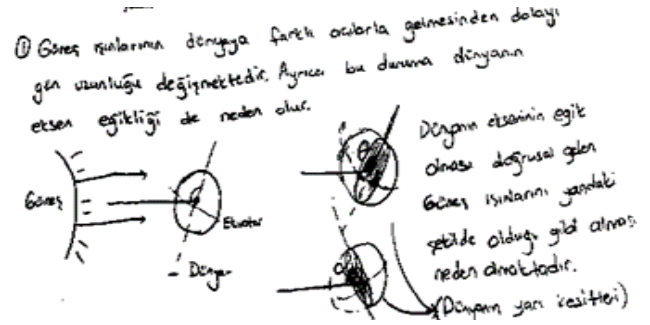 ① Güneş ışınlarının dünyaya farklı açılarla gelmesinden dolayı
gün uzunluğu değişmektedir. Ayrıca bu duruma dünyanın
eksen eğikliği de neden olur.
Güneş
Ekvator
Dünya
Dünyanın ekseninin eğik
olması doğrusal gelen
Güneş ışınlarını yandaki
şekilde olduğu gibi almasına
neden olmaktadır.
(Dünyanın yarı kesitleri)